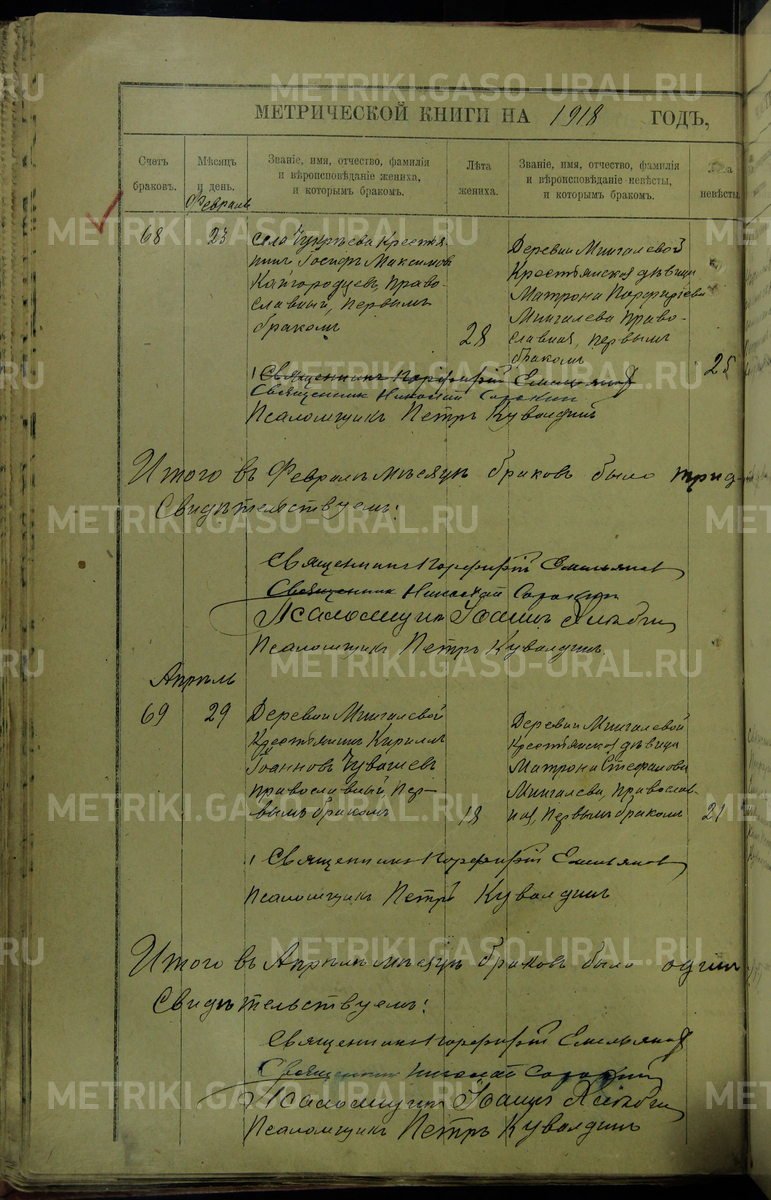 МЕТРИЧЕСКОЙ КНИГИ НА 1918 ГОДЪ,
Счетъ браковъ.
Мѣсяцъ и день.
Званіе, имя, отчество, фамилія и вѣроисповѣданіе жениха, и которымъ бракомъ.
Лѣта жениха.
Званіе, имя, отчество, фамилія и вѣроисповѣданіе невѣсты, и которымъ бракомъ.
невѣсты
Февраль
68
23
Села Крестья-
нинъ Іосифъ Максимов
Кайгородцевъ, Право-
славный, первымъ
бракомъ
28
Деревни Мингалевой
Крестьянская дѣвица
Матрона Порфиріева
Мингалева Право-
славная, первымъ
бракомъ
25
Священникъ Порфирій Емельянов
Священник Николай Сорокин
Псаломщикъ Петръ Кувалдинъ
Итого въ Февралѣ мѣсяцѣ браковъ было трид-
Свидѣтельствуемъ:
Священникъ Порфирій Емельянов
Священник Николай Сорокин
Псаломщикъ Іоаннъ
Псаломщикъ Петръ Кувалдинъ
Апрѣль
69
29
Деревни Мингалевой
Крестьянинъ Кириллъ
Іоанновъ Чувашев
православный, пер-
вымъ бракомъ
18
Деревни Мингалевой
Крестьянская дѣвица
Матрона Стефанова
Мингалева, Православ
ная, первымъ бракомъ
21
Священникъ Порфирій Емельянов
Псаломщикъ Петръ Кувалдинъ
Итого въ Апрѣлѣ мѣсяцѣ браковъ было один
Свидѣтельствуемъ:
Священникъ Порфирій Емельянов
Священник Николай Сорокин
Псаломщикъ Іоаннъ
Псаломщикъ Петръ Кувалдинъ
METRIKI.GASO-URAL.RU